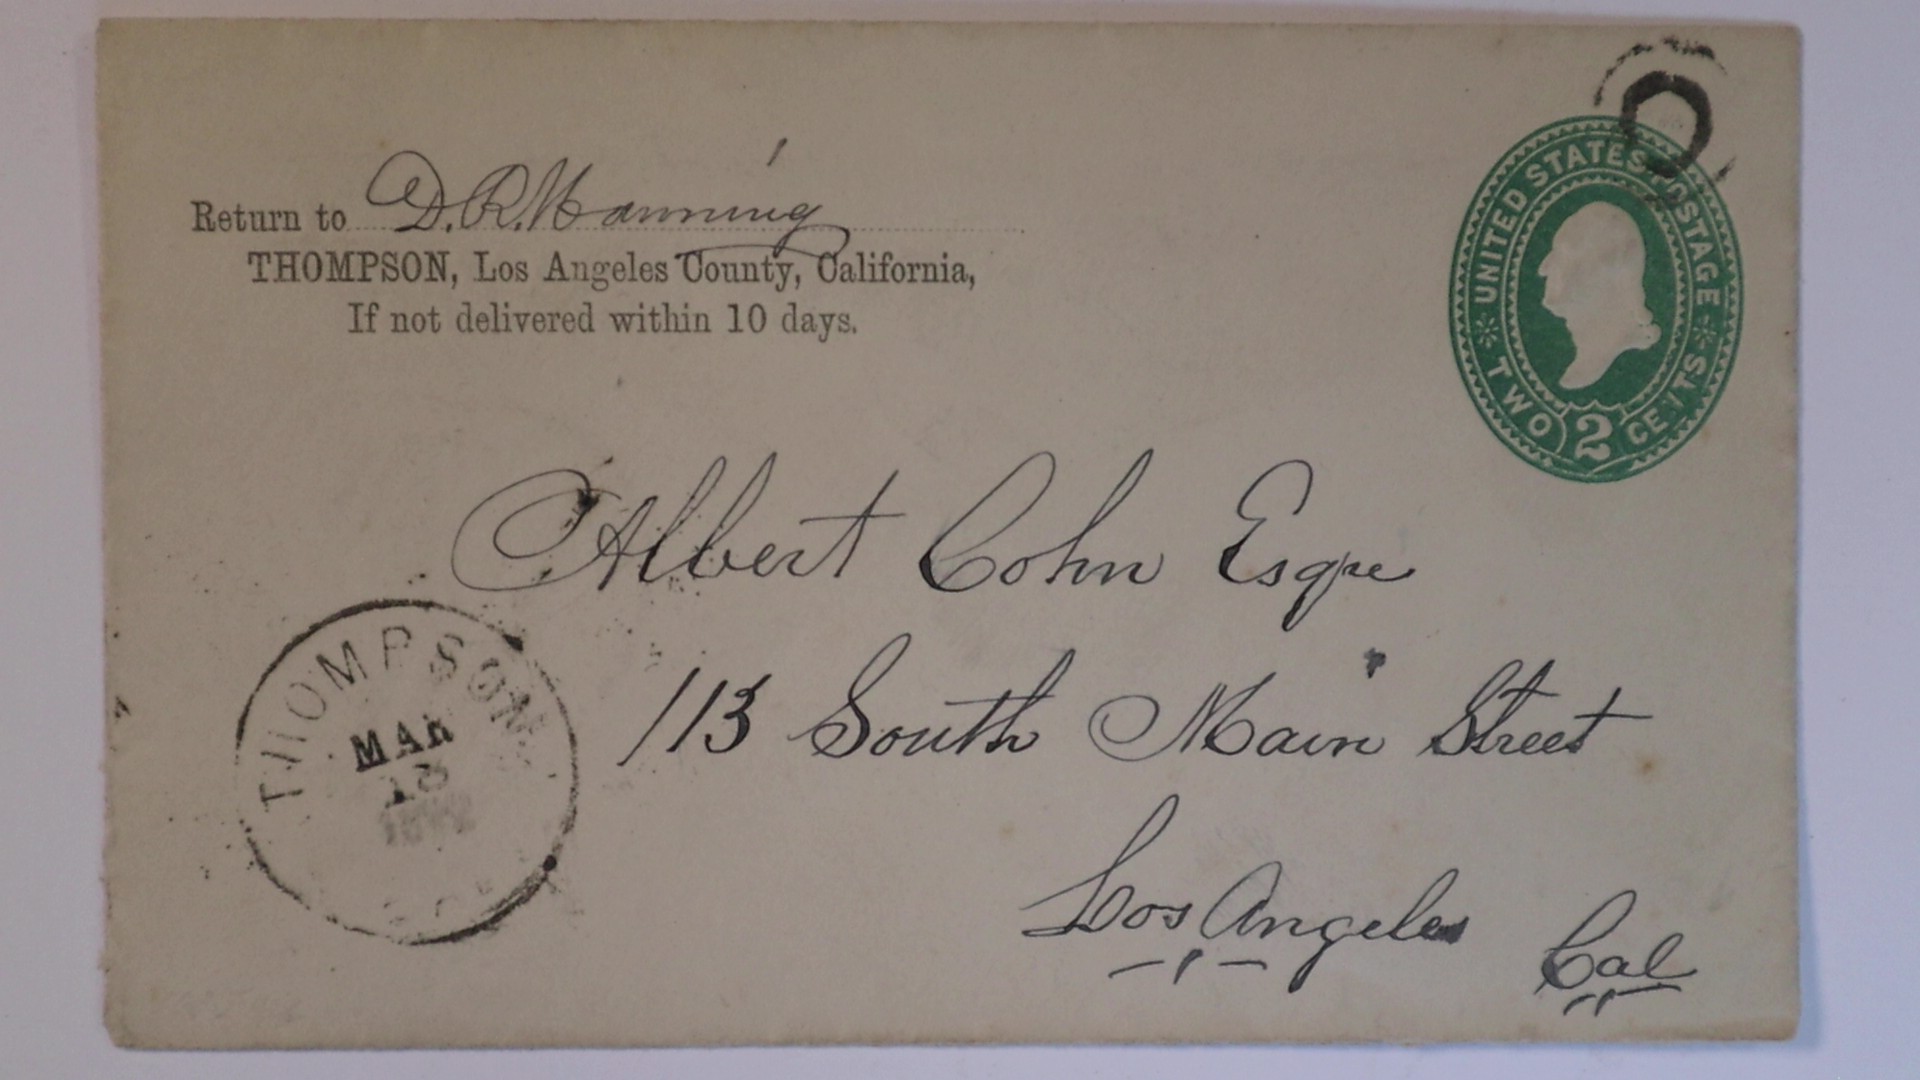 Return to D. R. Manning
THOMPSON, Los Angeles County, California,
If not delivered within 10 days.
UNITED STATES POSTAGE
TWO 2 CENTS
Albert Cohn Esqre
113 South Main Street
Los Angeles Cal
THOMPSON
MAR
13